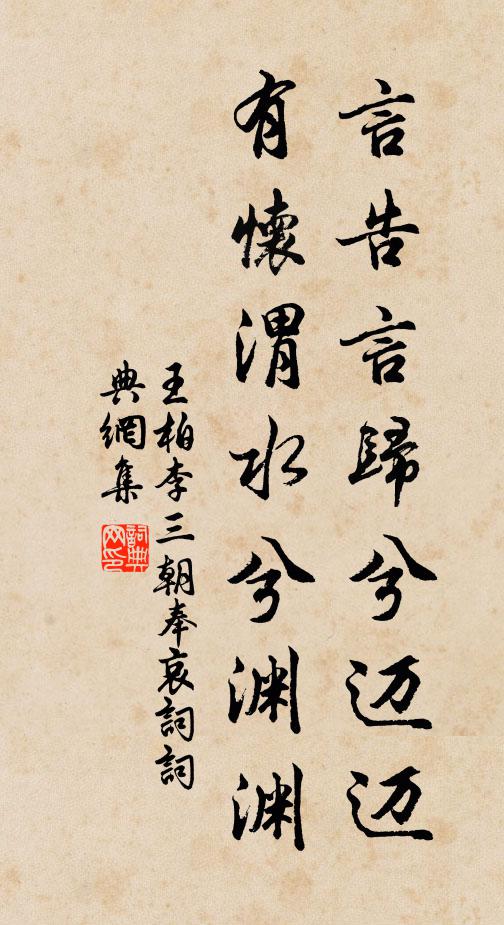 言告言歸兮迈迈
有懷渭水兮渊渊
王柏李三朝奉哀詞詞
典網集
詞典网印